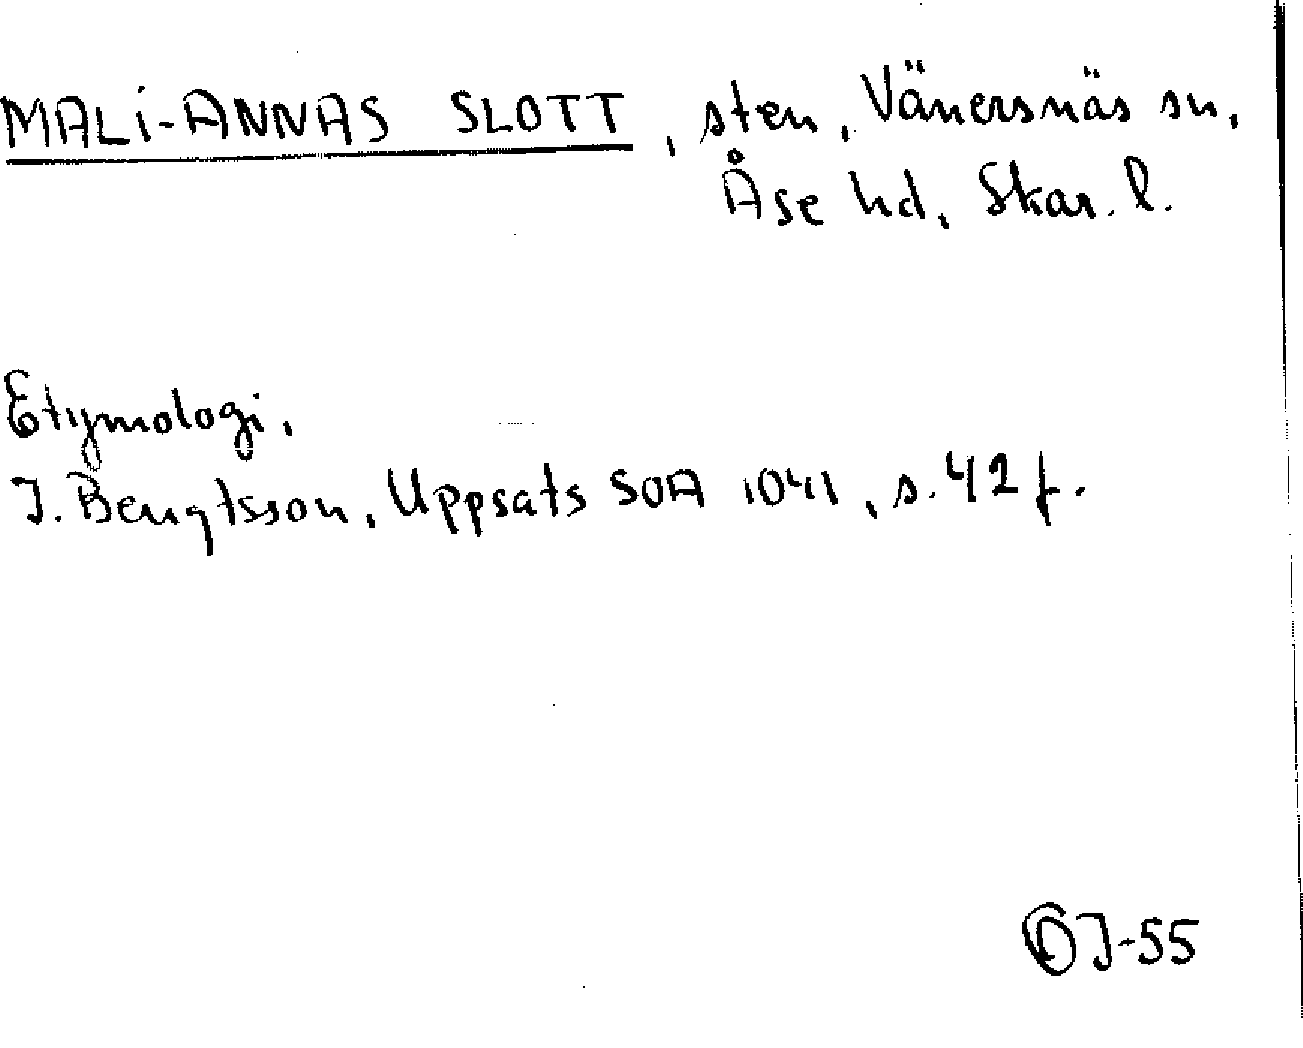 MALI-ANNAS SLOTT, sten, Vänersnäs sn,
Åse hd, Skar. l.
Etymologi.
J. Bengtsson, Uppsats SOA 1041, s. 42 f.
J-55